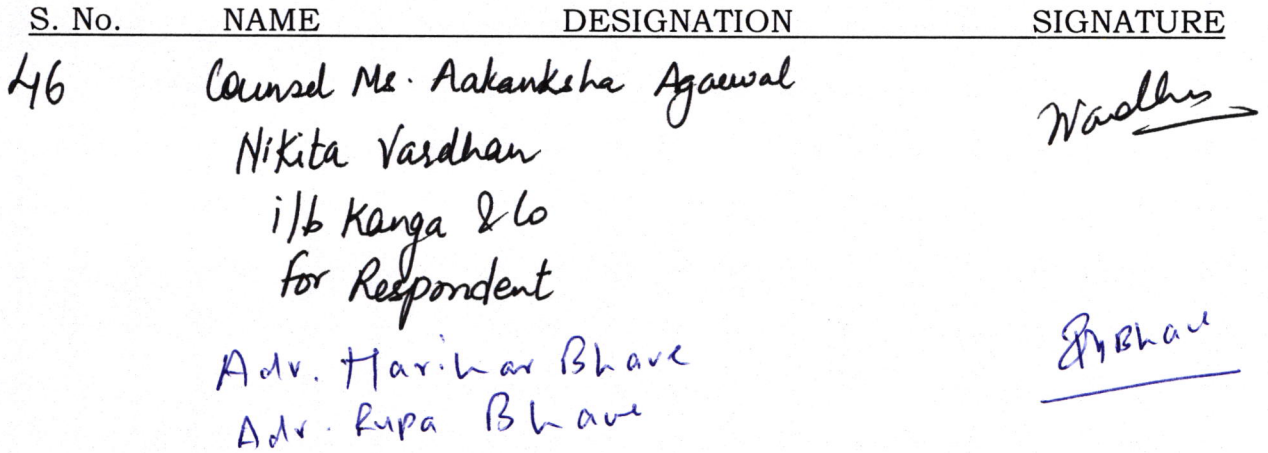 S. No. NAME DESIGNATION SIGNATURE
46 Counsel Ms. Aakanksha Agarwal
Nikita Vardhan
i/b Kanga & Co
for Respondent
Adv. Harihar Bhave
Bhave
Adv. Rupa Bhave